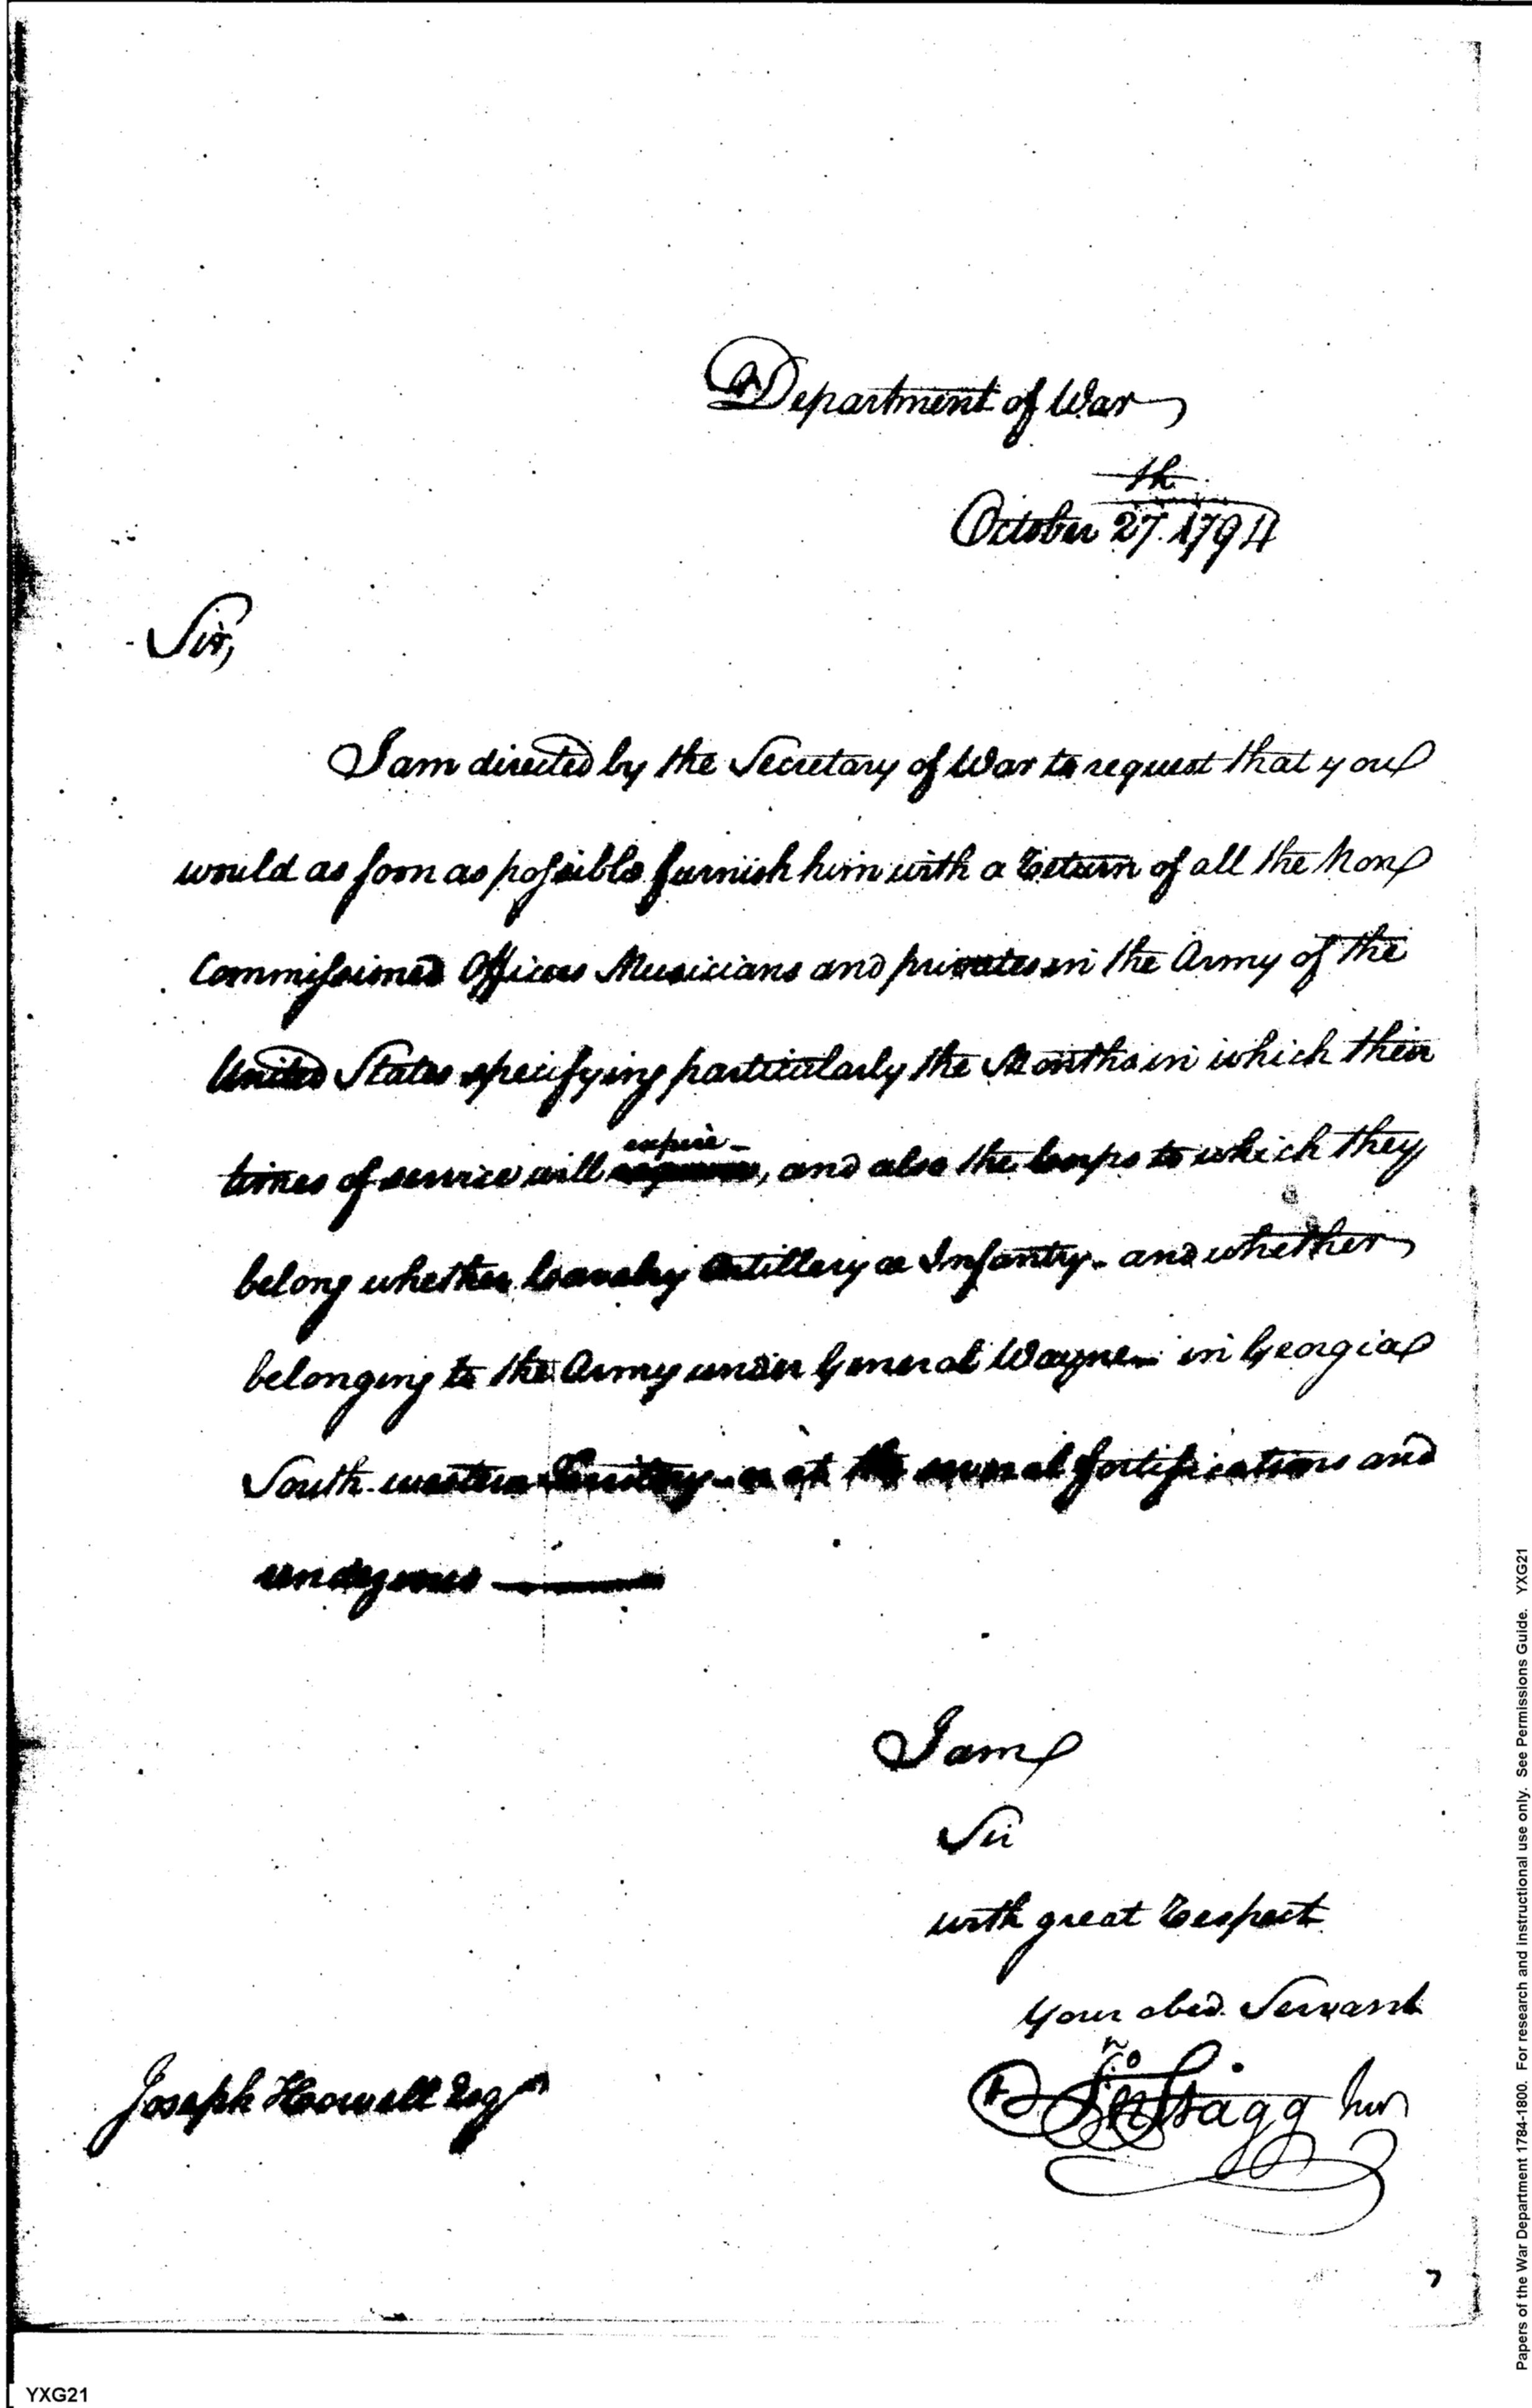 Department of War
October 27th 1794
Sir,
I am directed by the Secretary of War to request that you
would as soon as possible furnish him with a Return of all the Non
Commissioned Officers Musicians and privates in the Army of the
United States specifying particularly the Months in which their
times of service will expire, and also the Corps to which they
belong whether Cavalry Artillery or Infantry - and whether
belonging to the Army under General Wayne - in Georgia
South western Territory - or at the several fortifications and
rendezvous
I am
Sir
with great Respect
Your obed. Servant
Jno Stagg Junr
Joseph Howell Esqr
7
Papers of the War Department 1784-1800. For research and instructional use only. See Permissions Guide. YXG21
YXG21